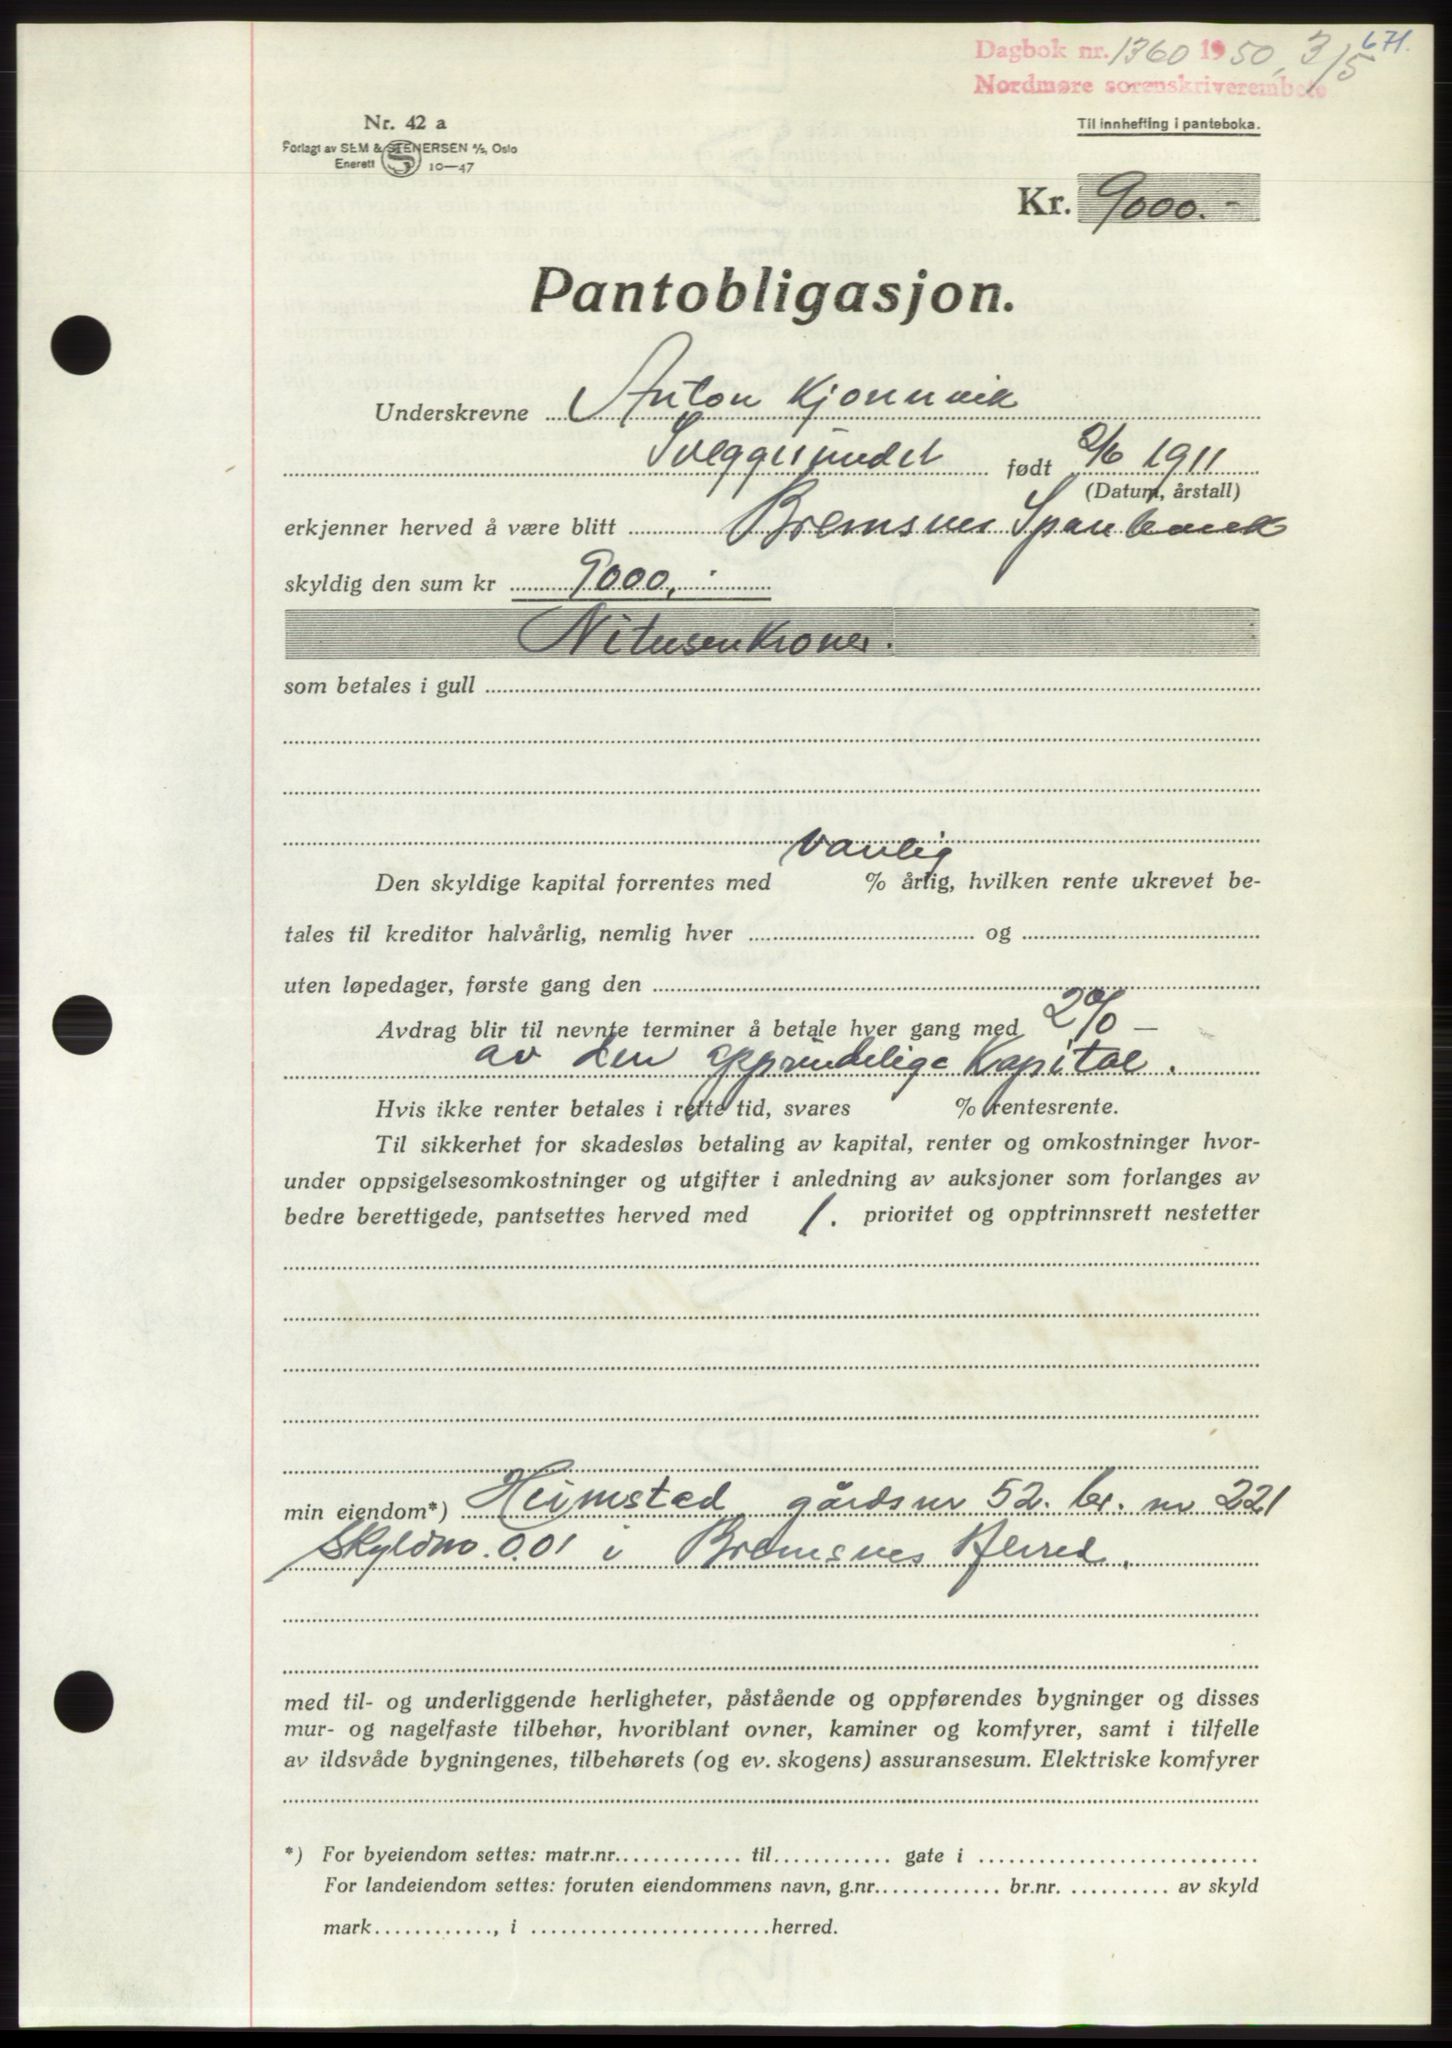 671.
Dagbok nr. 1360 1950, 3/5
Nordmøre sorenskriverembete
Nr. 42 a
Forlagt av SEM & STENERSEN A/S, Oslo
Enerett 10—47
Til innhefting i panteboka.
Kr. 9000.-
Pantobligasjon.
Underskrevne Anton Kjønnvik
Sveggesundet født 2/6 1911
(Datum, årstall)
erkjenner herved å være blitt Bremsnes Sparebank
skyldig den sum kr 9000,-
Nitusenkroner.
som betales i gull
vanlig
Den skyldige kapital forrentes med % årlig, hvilken rente ukrevet be-
tales til kreditor halvårlig, nemlig hver og
uten løpedager, første gang den
Avdrag blir til nevnte terminer å betale hver gang med 2% —
av den opprindelige Kapital.
Hvis ikke renter betales i rette tid, svares % rentesrente.
Til sikkerhet for skadesløs betaling av kapital, renter og omkostninger hvor-
under oppsigelsesomkostninger og utgifter i anledning av auksjoner som forlanges av
bedre berettigede, pantsettes herved med 1. prioritet og opptrinnsrett nestetter
min eiendom*) Heimstad gårdsnr 52. br. nr 221
Skyldm. 0.01 i Bremsnes Herred.
med til- og underliggende herligheter, påstående og oppførendes bygninger og disses
mur- og nagelfaste tilbehør, hvoriblant ovner, kaminer og komfyrer, samt i tilfelle
av ildsvåde bygningenes, tilbehørets (og ev. skogens) assuransesum. Elektriske komfyrer
*) For byeiendom settes: matr.nr............. til............ gate i ............................
For landeiendom settes: foruten eiendommens navn, g.nr............. br.nr. .......... av skyld
mark............, i ........................herred.